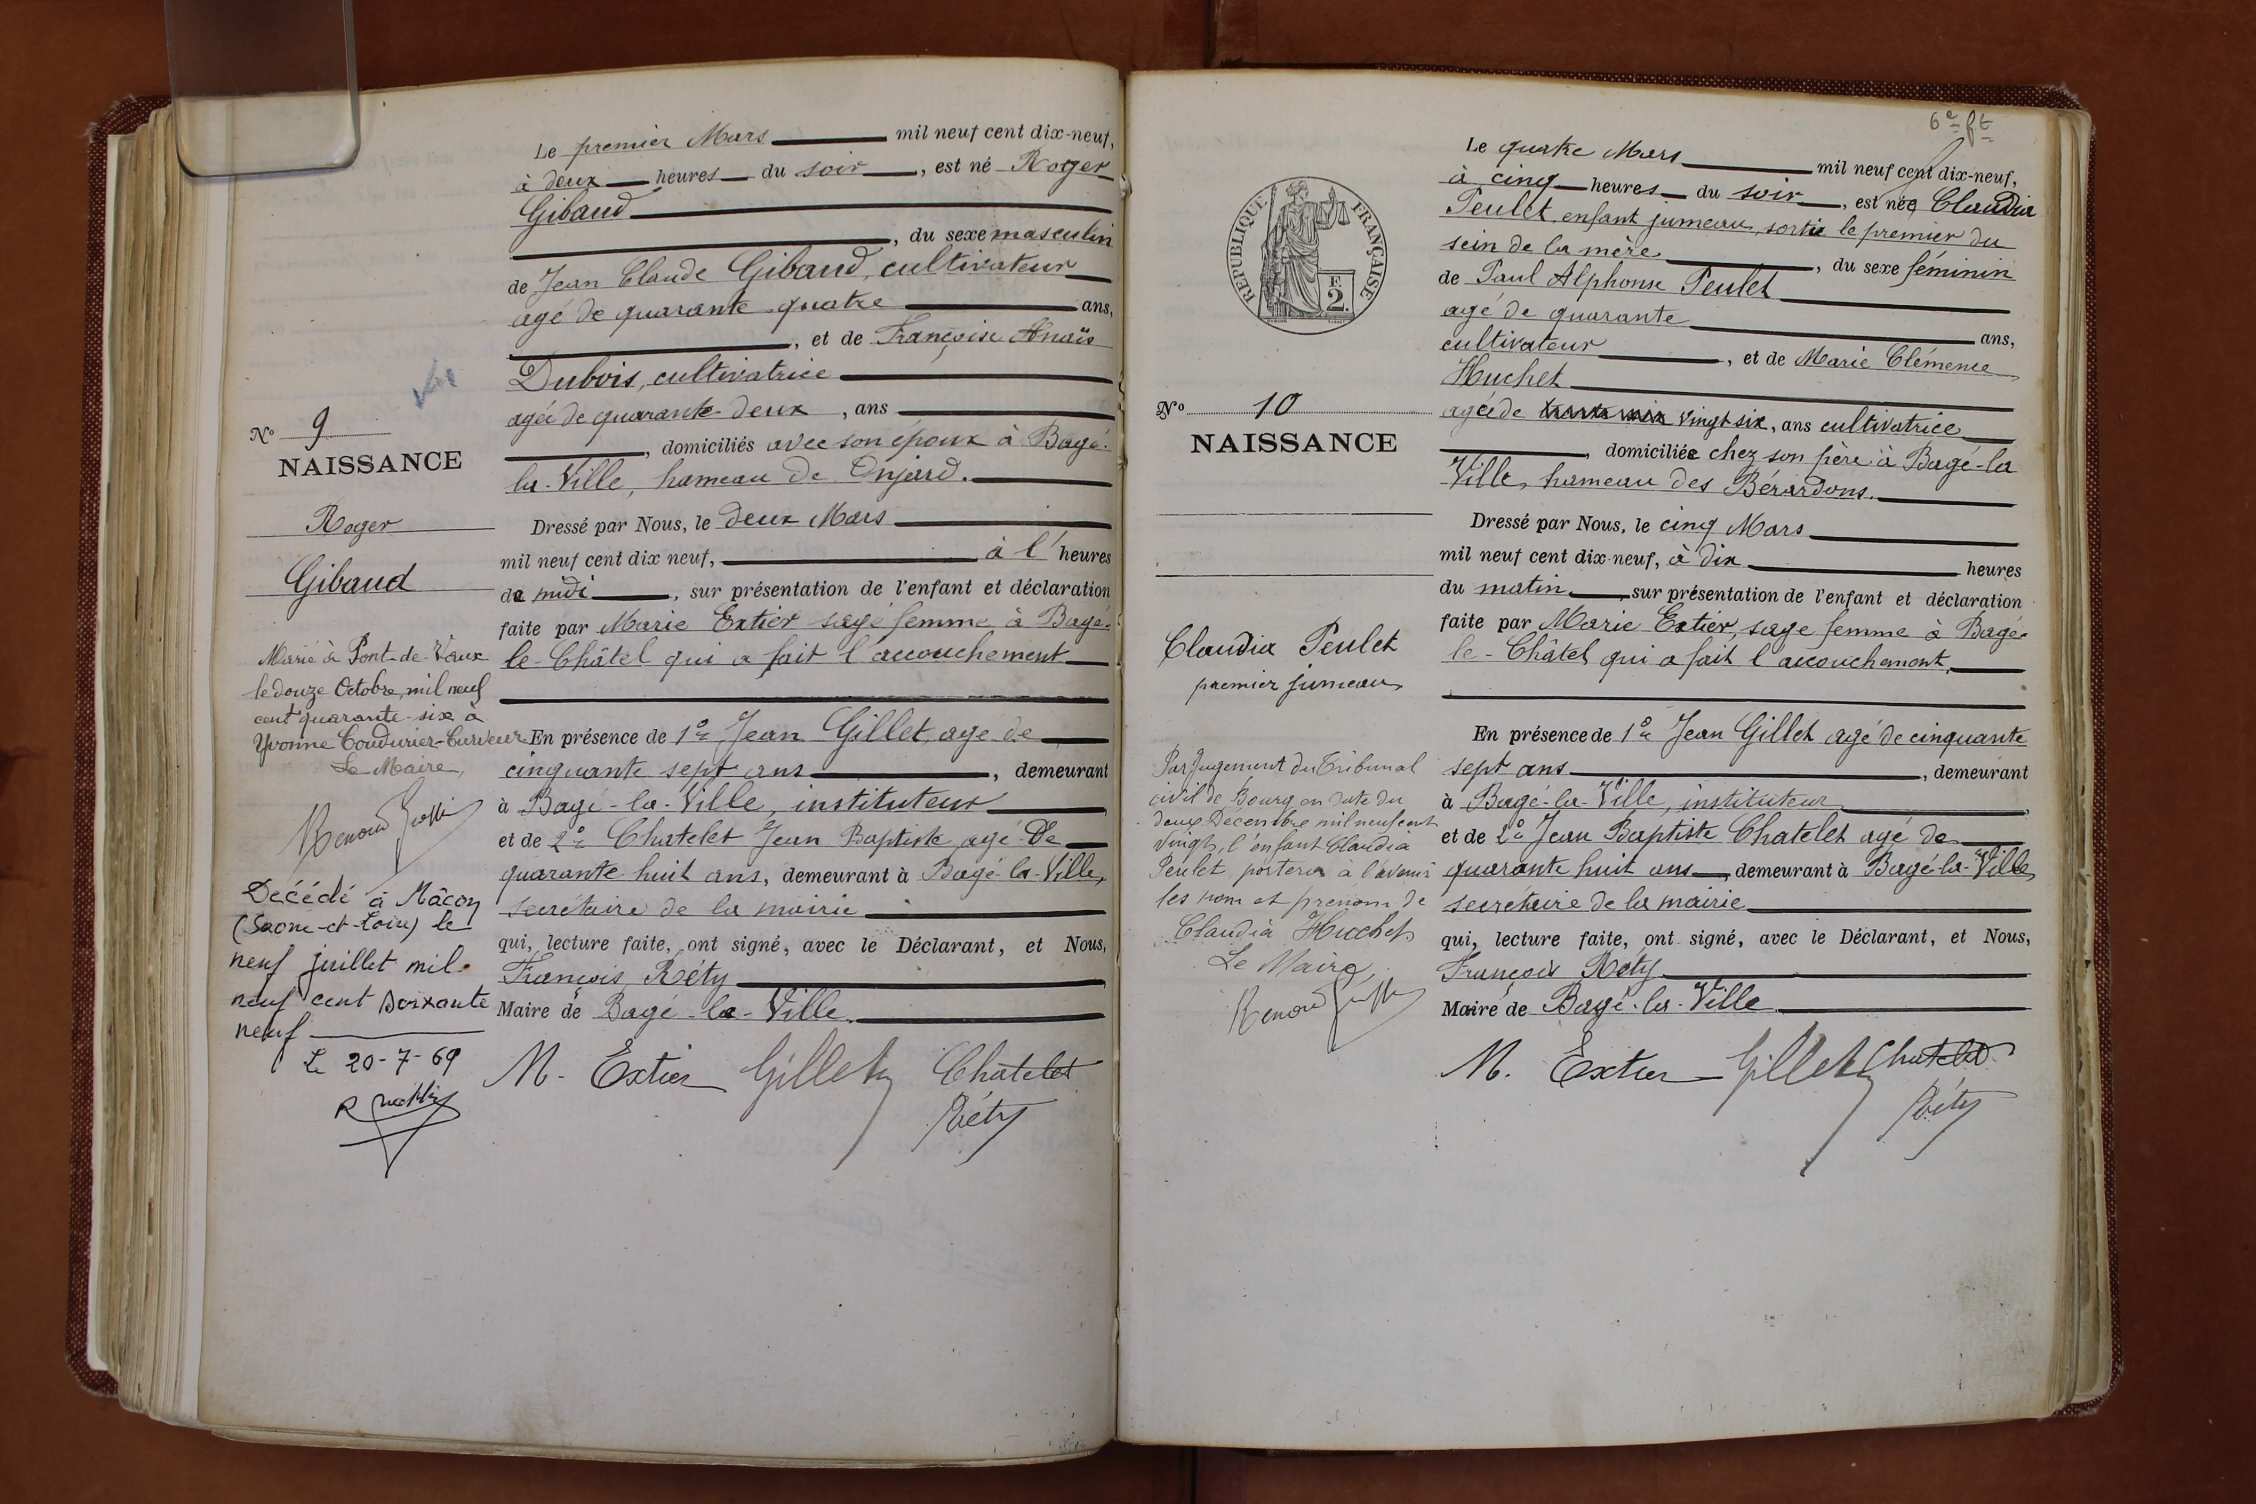 Le premier Mars mil neuf cent dix-neuf,
à deux heures du soir, est né Roger
Gibaud
, du sexe masculin
de Jean Claude Gibaud, cultivateur
agé de quarante quatre ans,
, et de Françoise Anaïs
Dubois, cultivatrice
agée de quarante-deux, ans
, domiciliés avec son époux à Bagé-
la-Ville, hameau de Onjard.
Dressé par Nous, le deux Mars
mil neuf cent dix neuf, à l'heures
de midi, sur présentation de l'enfant et déclaration
faite par Marie Extier sage femme à Bagé-
le-Châtel qui a fait l'accouchement
En présence de 1o Jean Gillet, agé de
cinquante sept ans, demeurant
à Bagé-la-Ville, instituteur
et de 2o Chatelet Jean Baptiste agé de
quarante huit ans, demeurant à Bagé-la-Ville,
secrétaire de la mairie
qui, lecture faite, ont signé, avec le Déclarant, et Nous,
François Réty
Maire de Bagé-la-Ville.
M. Extier Gillet Châtelet
Réty
No 9
NAISSANCE
Roger
Gibaud
Marié à Pont-de-Vaux
le douze Octobre, mil neuf
cent quarante-six à
Yvonne Coudurier-Curveur
Le Maire,
Décédé à Mâcon
(Saône-et-Loire) le
neuf juillet mil
neuf cent soixante
neuf
Le 20-7-69
6e ft
Le quatre Mars mil neuf cent dix-neuf,
à cinq heures du soir, est née Claudia
Peulet enfant jumeau, sortie le premier du
sein de la mère, du sexe féminin
de Paul Alphonse Peulet
agé de quarante ans,
cultivateur, et de Marie Clémence
Huchet
agée de vingt six, ans cultivatrice
, domiciliée chez son père à Bagé-la
Ville, hameau des Bérardons.
Dressé par Nous, le cinq Mars
mil neuf cent dix-neuf, à dix heures
du matin, sur présentation de l'enfant et déclaration
faite par Marie Extier, sage femme à Bagé-
le-Châtel qui a fait l'accouchement,
En présence de 1o Jean Gillet agé de cinquante
sept ans, demeurant
à Bagé-la-Ville, instituteur
et de 2o Jean Baptiste Chatelet agé de
quarante huit ans, demeurant à Bagé-la-Ville
secrétaire de la mairie
qui, lecture faite, ont signé, avec le Déclarant, et Nous,
François Réty
Maire de Bagé-la-Ville
M. Extier Gillet Chatelet
Réty
RÉPUBLIQUE FRANÇAISE
E
2.
No 10
NAISSANCE
Claudia Peulet
premier jumeau
Par jugement du Tribunal
civil de Bourg en date du
deux Décembre mil neuf cent
vingt, l'enfant Claudia
Peulet, portera à l'avenir
les nom et prénom de
Claudia Huchet
Le Maire,